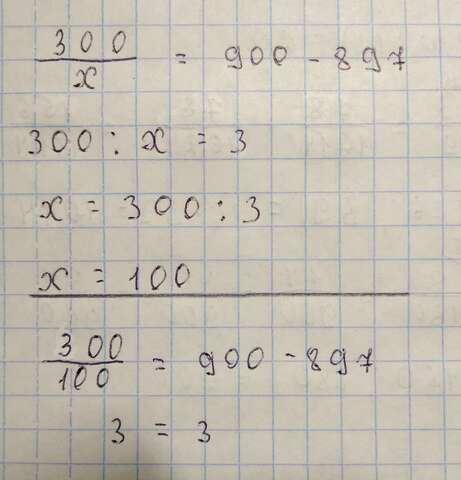 300/x = 900 - 897
300 : x = 3
x = 300 : 3
x = 100
300/100 = 900 - 897
3 = 3